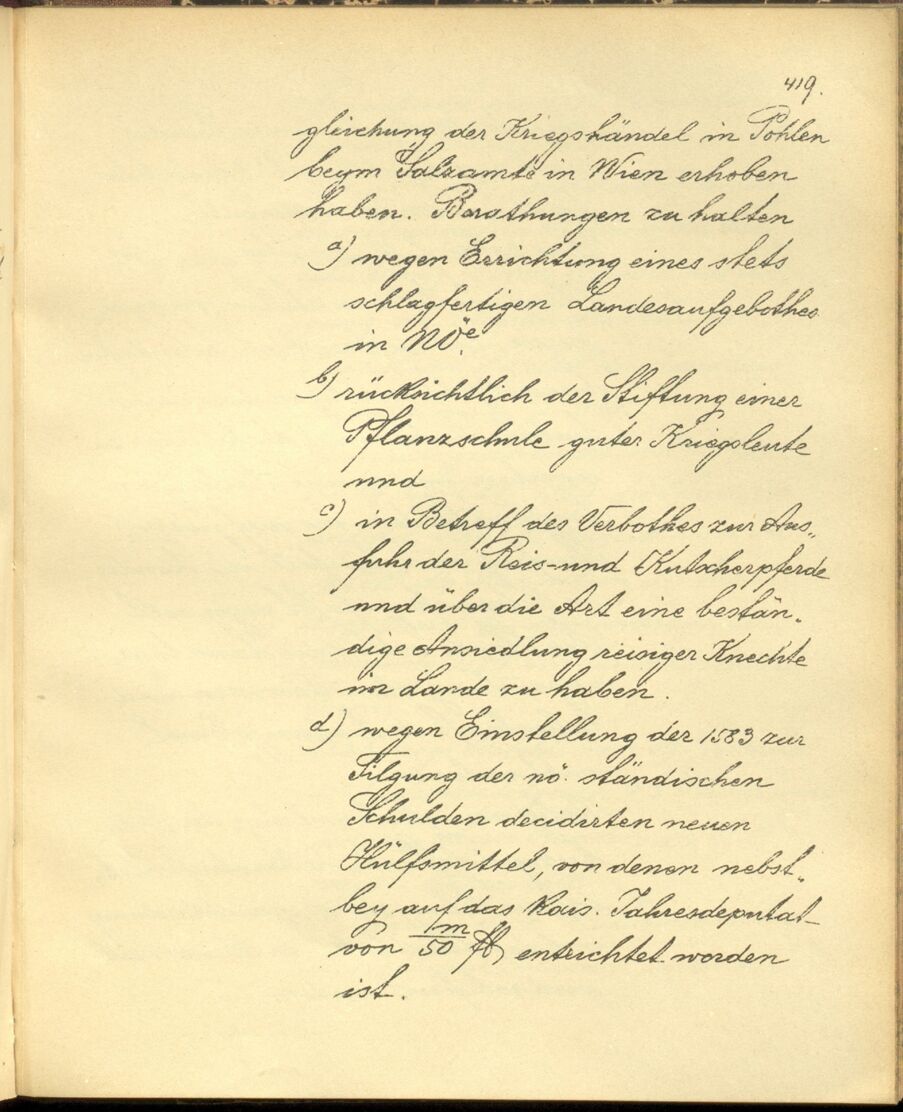 419.
gleichung der Kriegshändel in Pohlen
beym Salzamte in Wien erhoben
haben. Berathungen zu halten
a) wegen Errichtung eines stets
schlagfertigen Landesaufgebothes
in NÖe.
b) rücksichtlich der Stiftung einer
Pflanzschule guter Kriegsleute
und
c) in Betreff des Verbothes zur Aus„
fuhr der Reis- und Kutscherpferde
und über die Art eine bestän„
dige Ansiedlung reisiger Knechte
im Lande zu haben.
d) wegen Einstellung der 1583 zur
Tilgung der nö. ständischen
Schulden decidirten neuen
Hülfsmittel, von denen nebst„
bey auf das kais. Jahresdeputat
von 50 m/ fl entrichtet worden
ist.